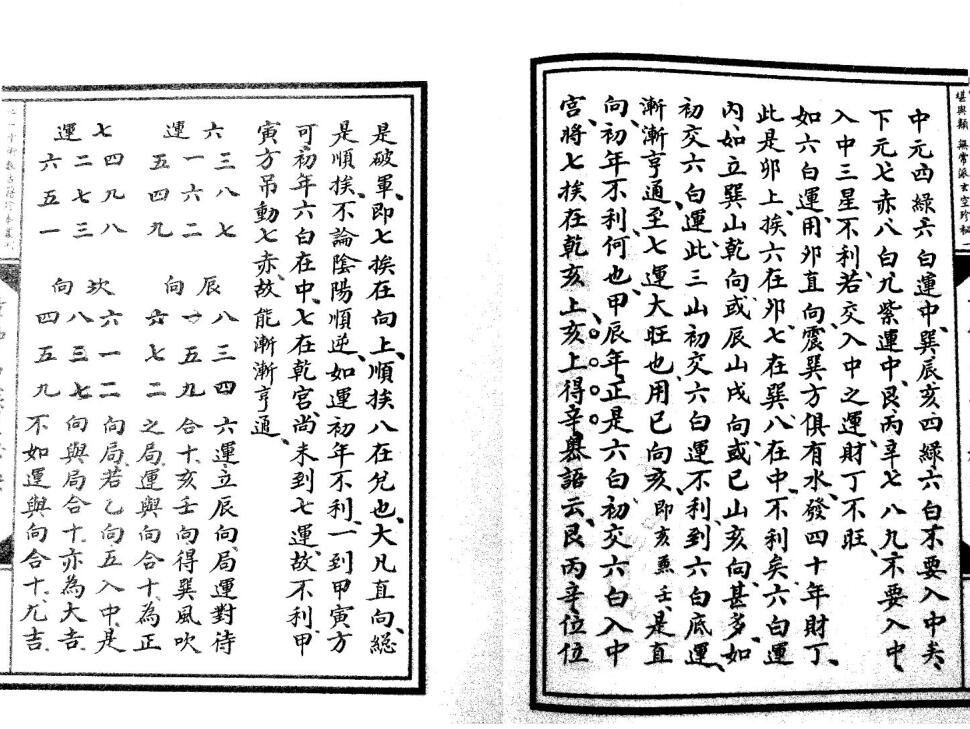 堪輿類 無常派玄空珍秘
中元四綠六白運中巽辰亥四綠六白不要入中夫
下元七赤八白九紫運中艮丙辛七八九不要入中
入中三星不利若交入中之運財丁不旺
如六白運用夘直向震巽方俱有水發四十年財丁
此是夘上挨六在夘七在巽八在中不利矣六白運
內如立巽山乾向或辰山戌向或巳山亥向甚多如
初交六白運此三山初交六白運不利到六白底運
漸漸亨通至七運大旺也用巳向亥即亥兼壬是直
向初年不利何也甲辰年正是六白初交六白入中
宮將七挨在乾亥上亥上得辛纂語云艮丙辛位位
是破軍即七挨在向上順挨八在兌也大凡直向總
是順挨不論陰陽順逆如運初年不利一到甲寅方
可初年六白在中七在乾宮尚未到七運故不利甲
寅方吊動七赤故能漸漸亨通
六 三八七 辰 八三四 六運立辰向局運對待
一六二 一五九 合十亥壬向得巽風吹
運 五四九 向 六七二 之局運與向合十為正
七 四九八 坎 六一二 向局若乙向五入中是
二七三 八三七 向與局合十亦為大吉
運 六五一 向 四五九 不如運與向合十尤吉